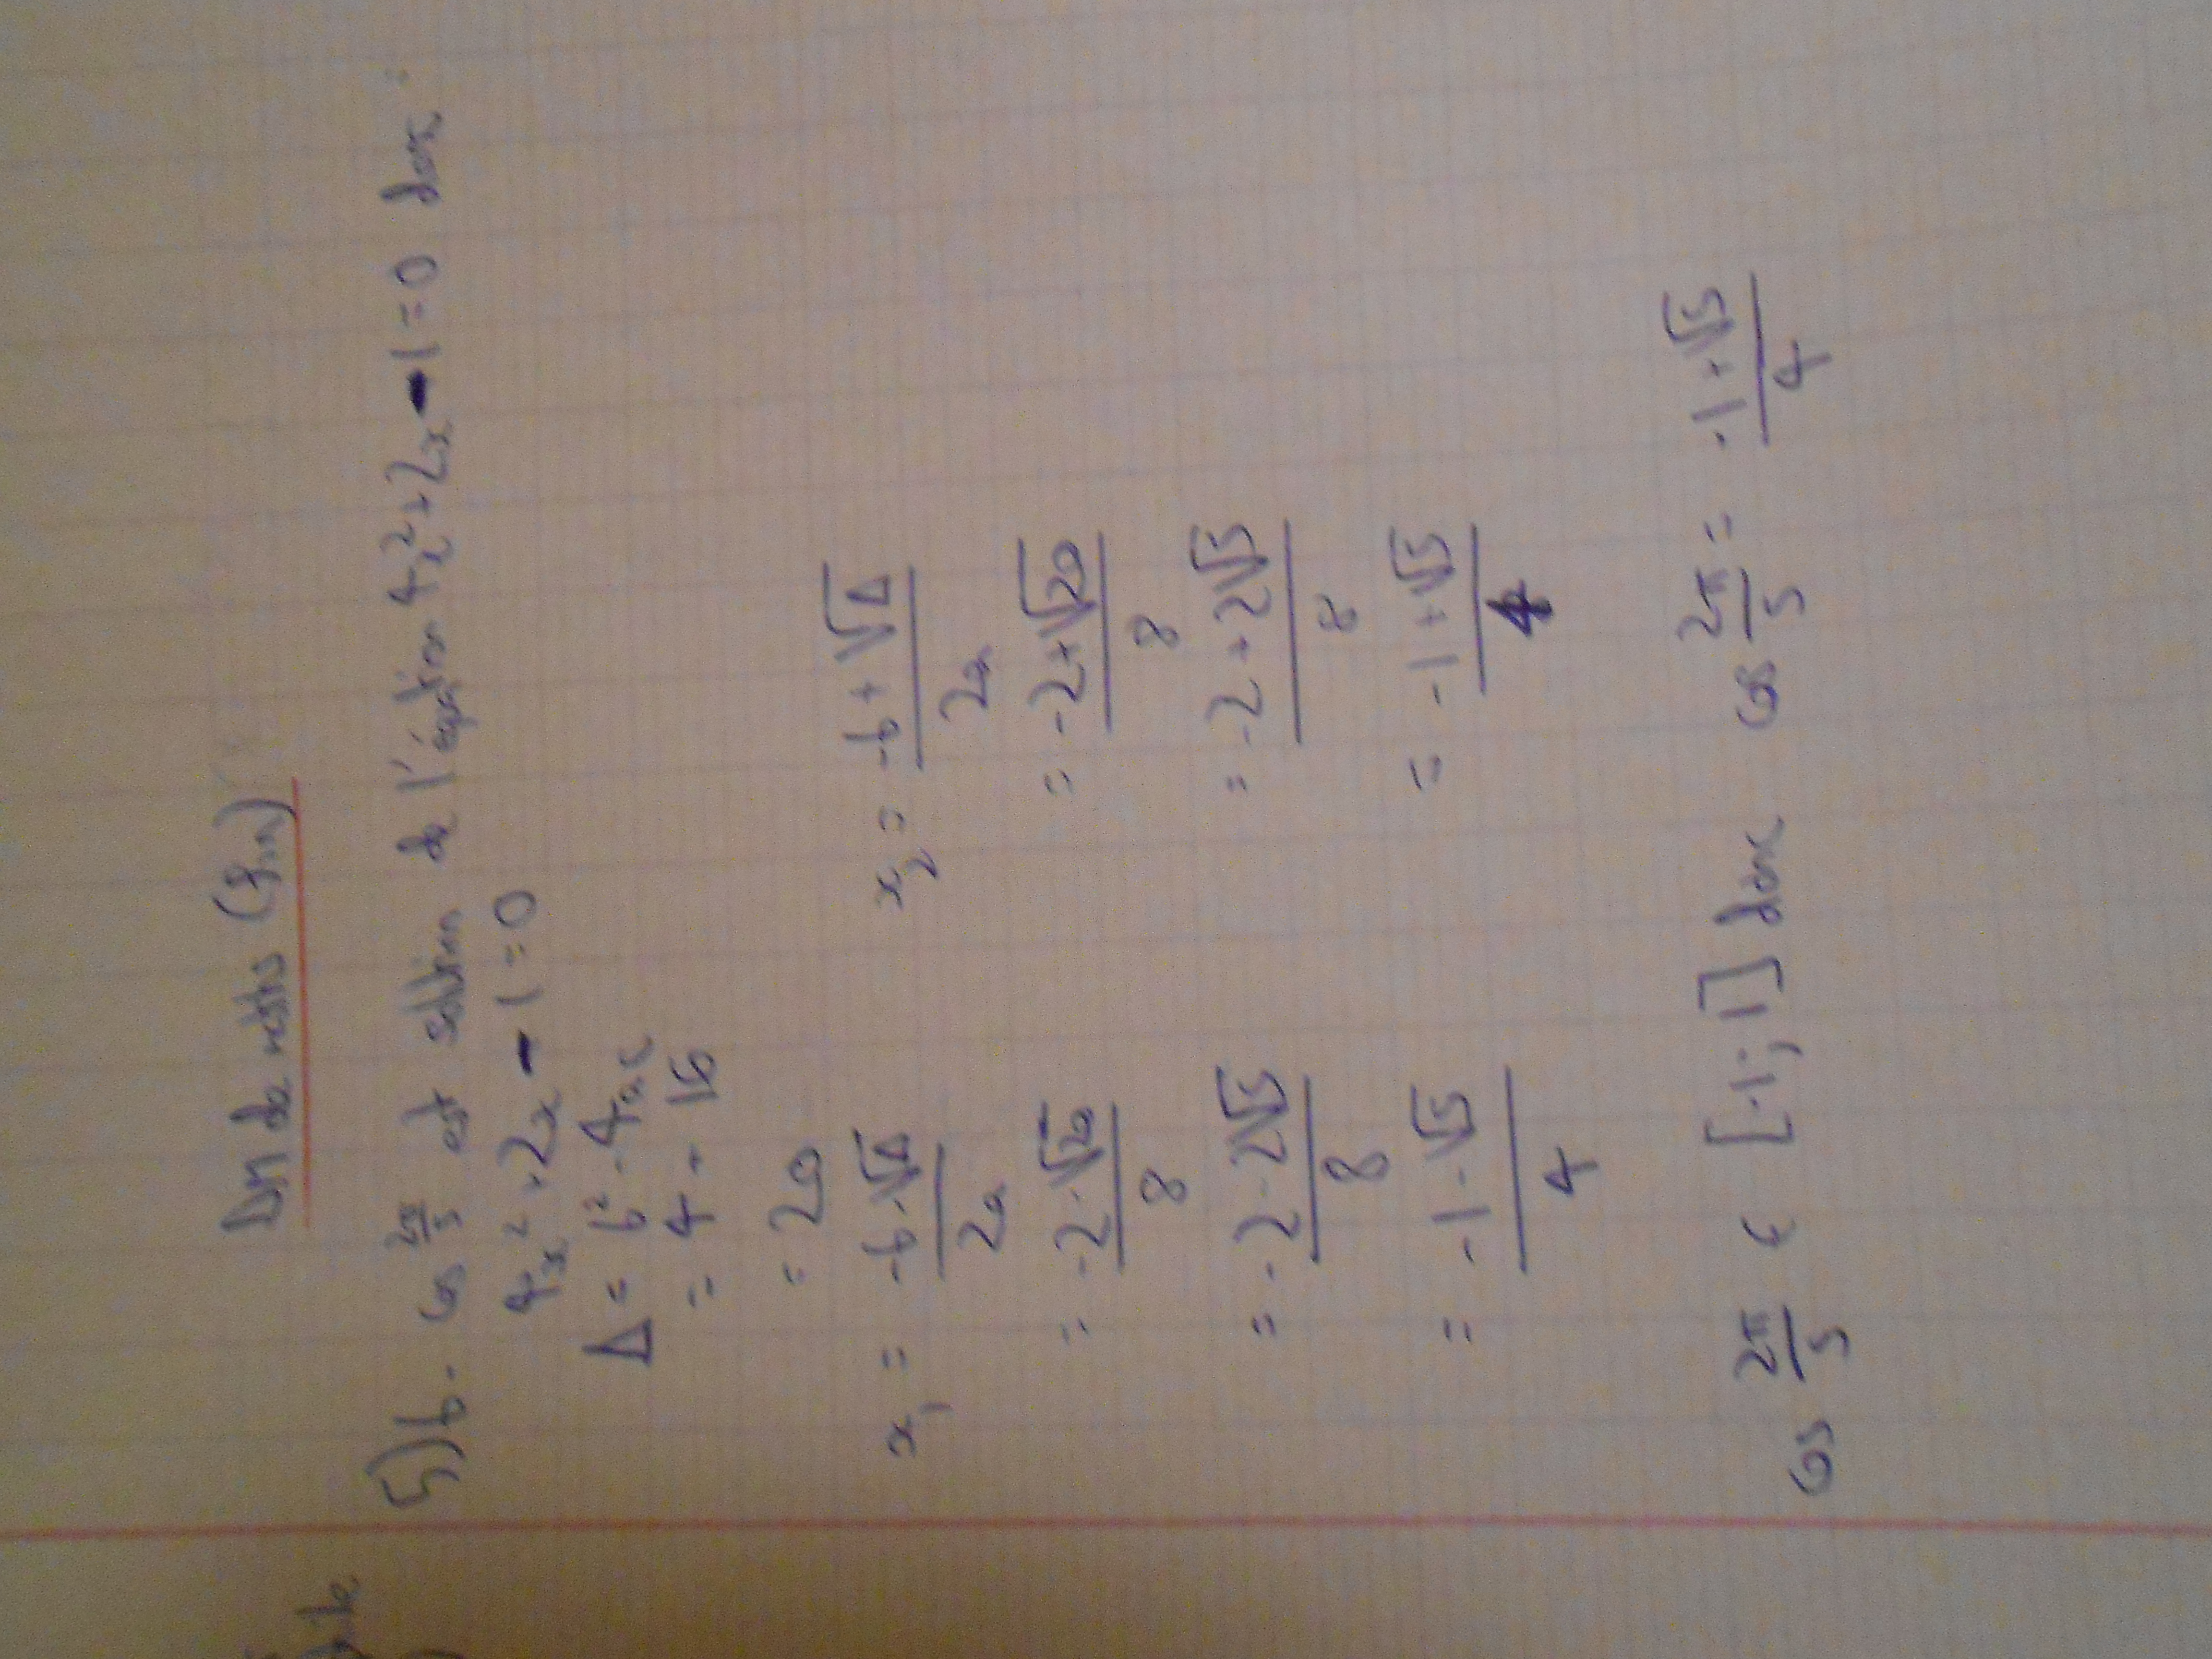 DM de maths (fin)
5) b. cos 2π/5 est solution de l'équation 4x² + 2x - 1 = 0 donc :
4x² + 2x - 1 = 0
Δ = b² - 4ac
= 4 + 16
= 20
x₁ = -b-√Δ / 2a    x₂ = -b+√Δ / 2a
= -2-√20 / 8    = -2+√20 / 8
= -2-2√5 / 8    = -2+2√5 / 8
= -1-√5 / 4    = -1+√5 / 4
cos 2π/5 ∈ [-1;1] donc cos 2π/5 = -1+√5 / 4